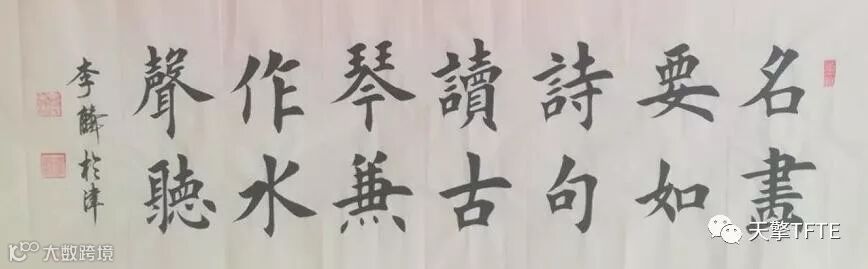 名畫
要如
詩句
讀古
琴兼
作水
聲聽
李 於津
天擎TFTE
大数跨境